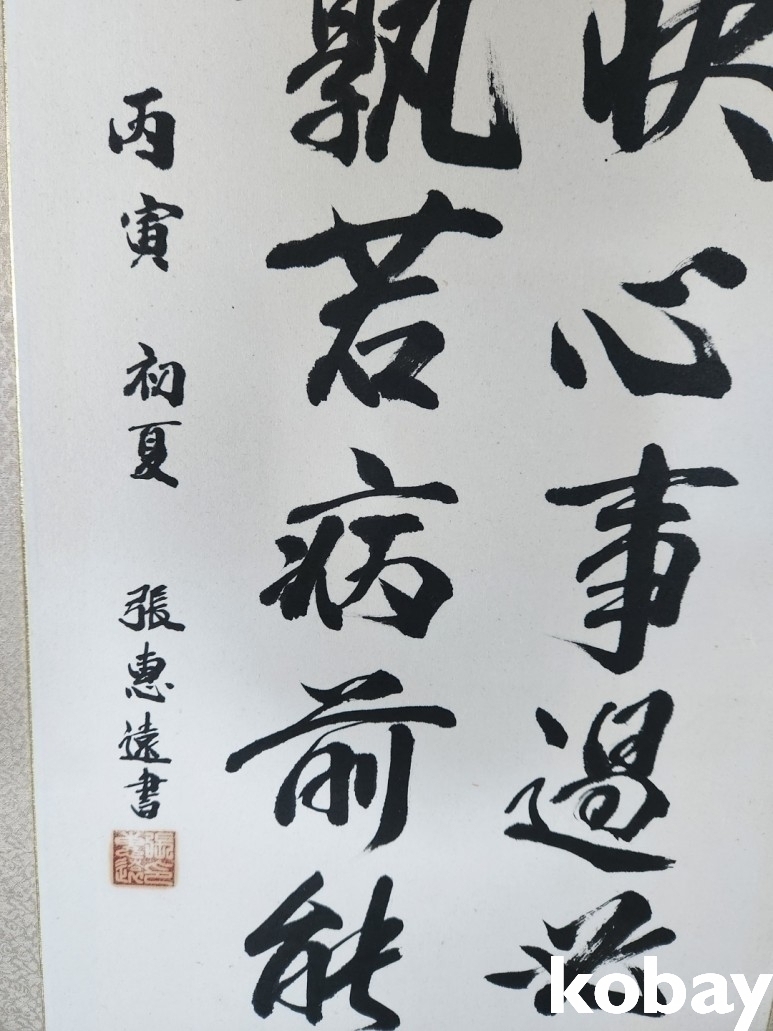 快心事過必
孰若病前能
丙寅 初夏 張惠遠書
張印惠遠
kobay